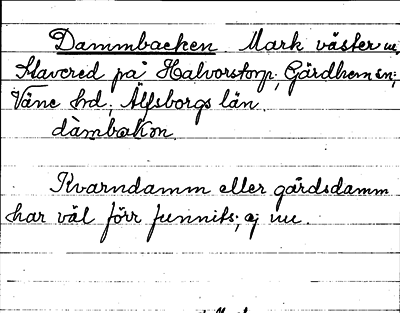 Dammbacken. Mark väster om
Stavered på Halvorstorp; Gärdhem sn;
Väne hd; Älfsborgs län.
dàmbakən
Kvarndamm eller gårdsdamm
har väl förr funnits, ej nu.